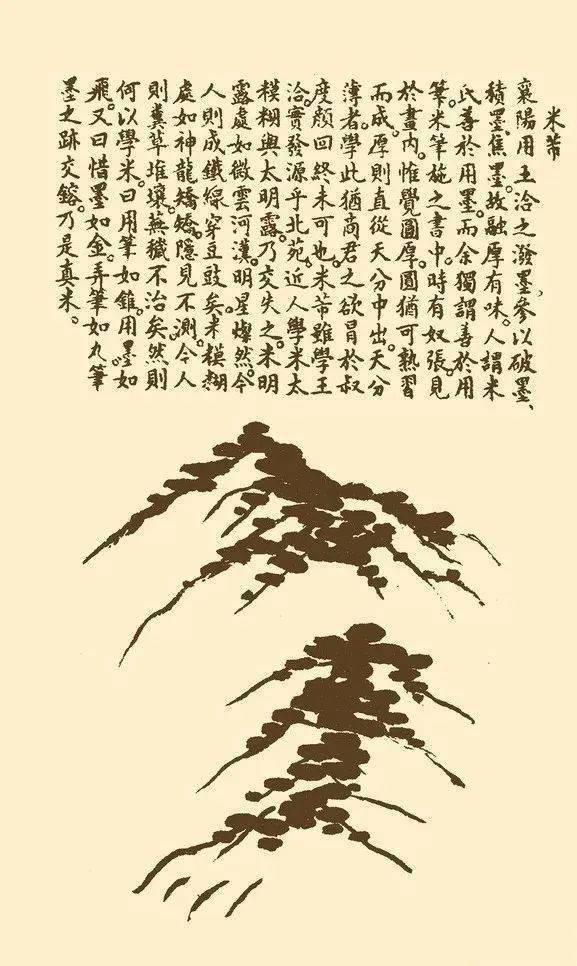 米芾
襄陽用王洽之潑墨、參以破墨、
積墨、焦墨。故融厚有味。人謂米
氏善於用墨。而余獨謂善於用
筆。米筆施之書中。時有奴張見
於畫內。惟覺圓厚。圓猶可熟習
而成。厚則直從天分中出。天分
薄者。學此猶商君之欲冒於叔
度。顏回終未可也。米芾雖學王
洽。實發源乎北苑。近人學米太
模糊與太明露。乃交失之。米明
露處如微雲河漢。明星燦然。今
人則成鐵綫穿豆豉矣。米模糊
處如神龍矯矯。隱見不測。今人
則糞草堆壤。蕪穢不治矣。然則
何以學米。曰用筆如錐。用墨如
飛。又曰惜墨如金。弄筆如丸。筆
墨之跡交鎔。乃是真米。